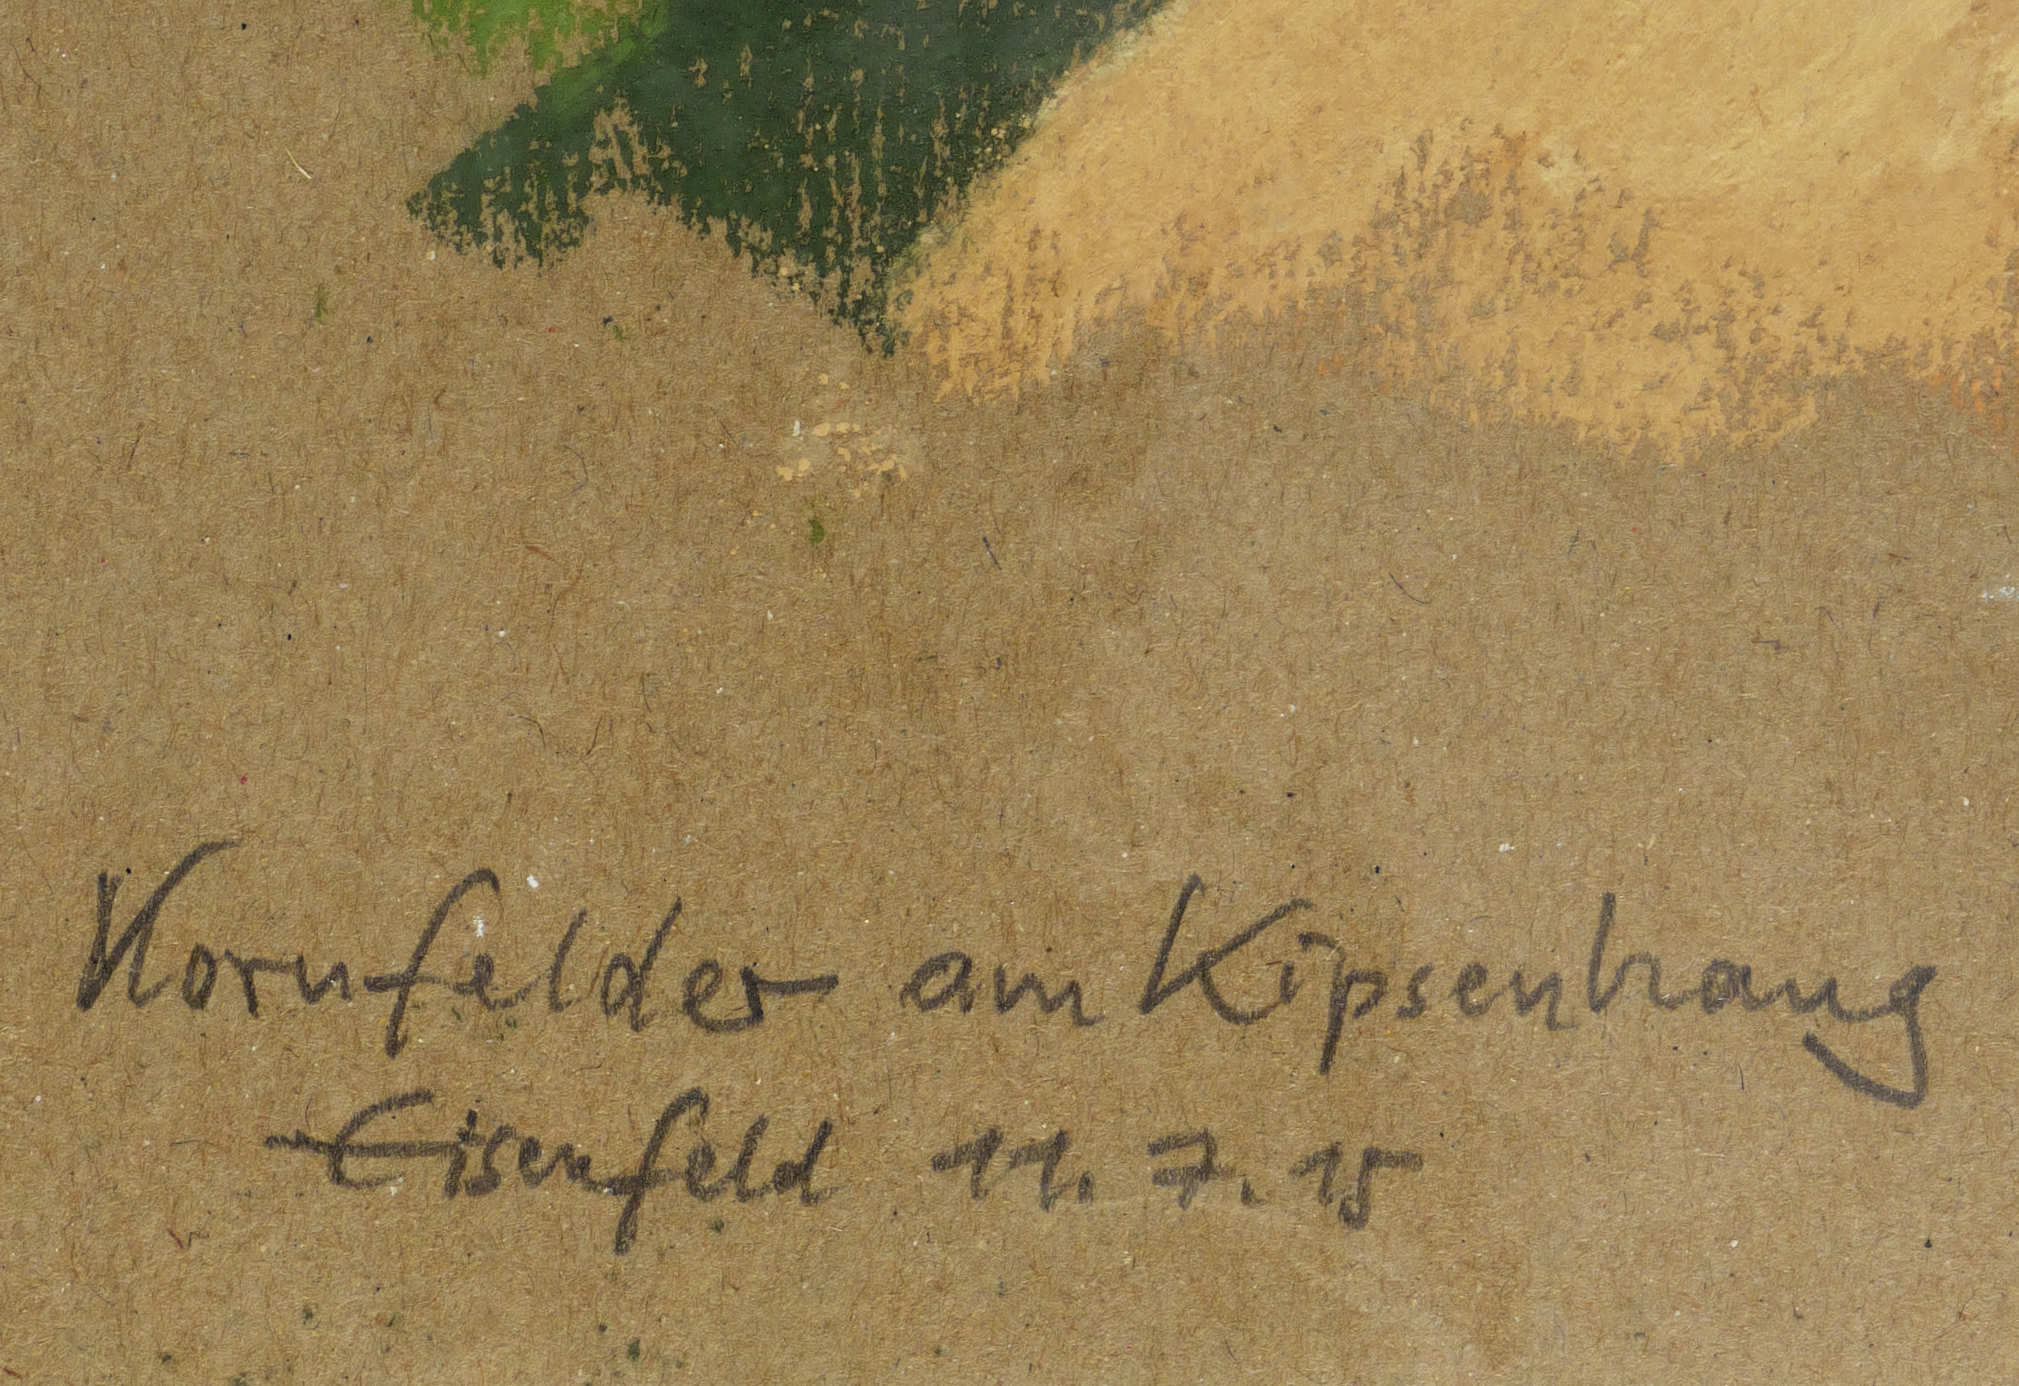 Kornfelder am Kipsenhang
Eisenfeld 11.7.15